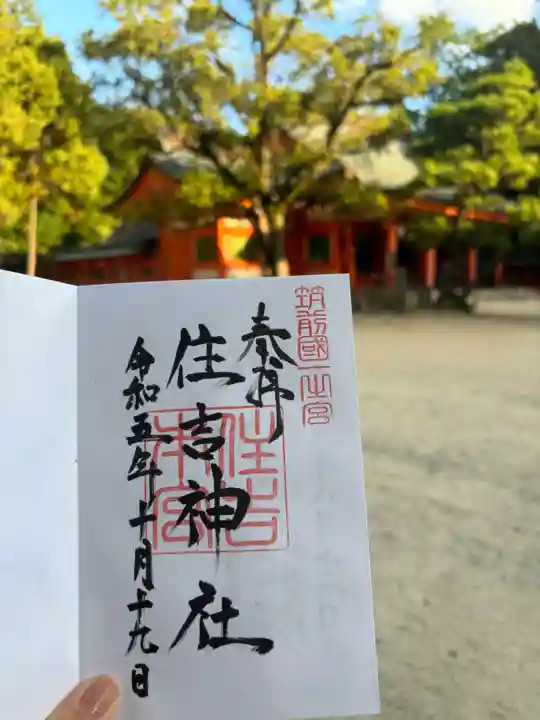 筑前國一之宮
奉拝
住吉神社
住吉本宮
令和五年十月十九日